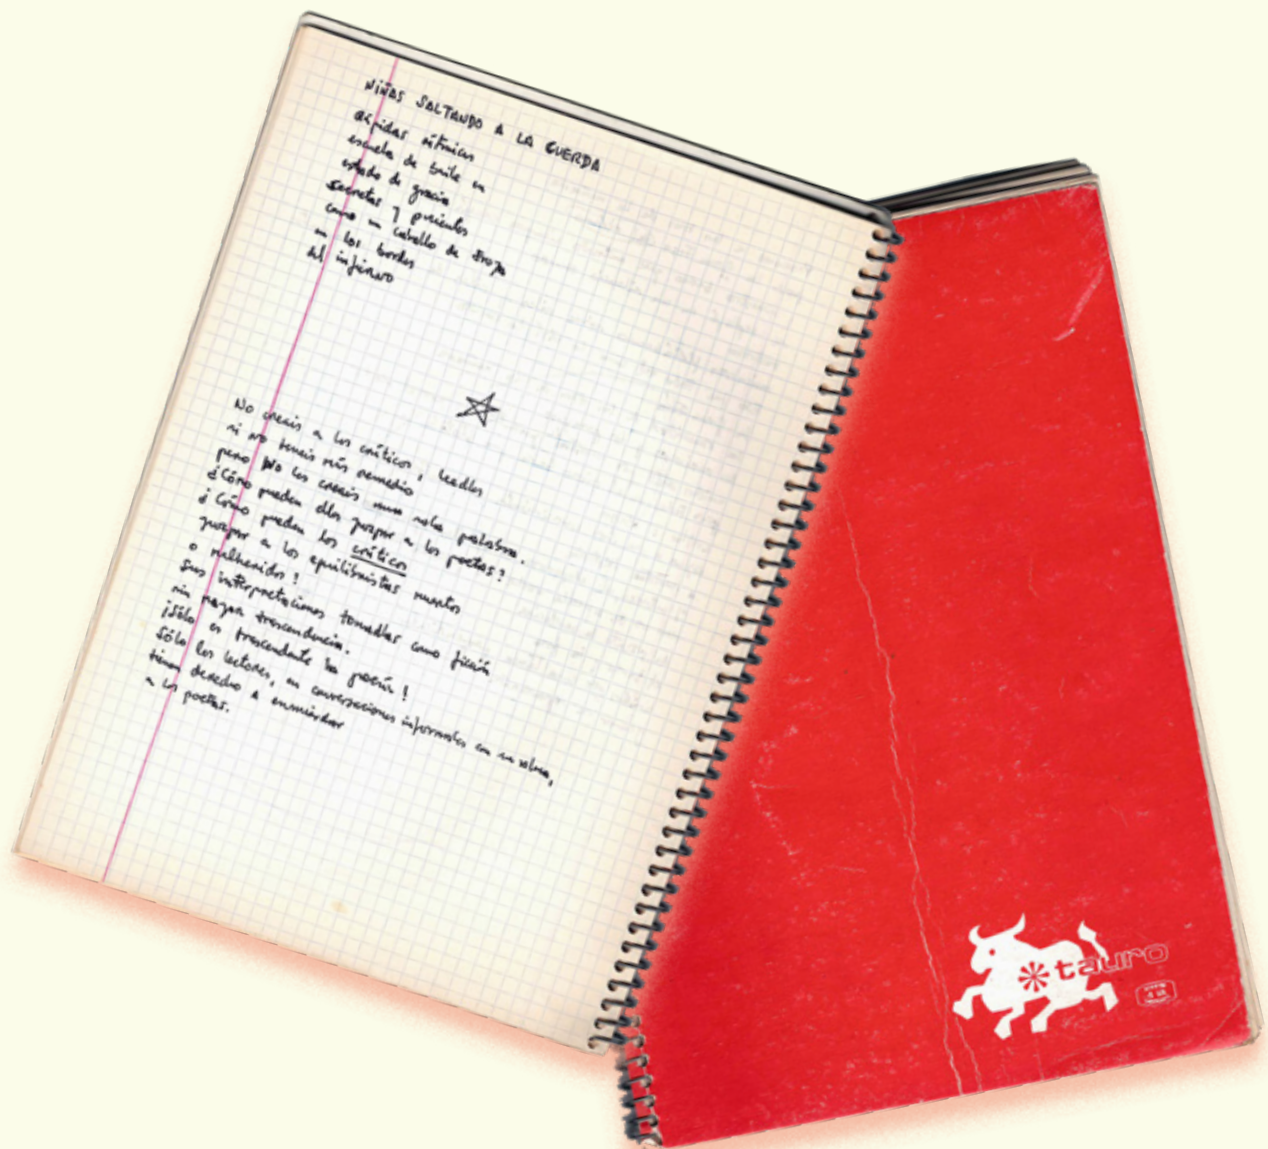 NIÑAS SALTANDO A LA CUERDA
áspides rítmicas
escuela de baile en
estado de gracia
secretas y
como un caballo de troya
en los bordes
del infierno
No creais a los críticos, leedlos
si no teneis más remedio
pero NO los creais una sola palabra.
¿Cómo pueden ellos juzgar a los poetas?
¿Cómo pueden los críticos
juzgar a los equilibristas muertos
o malheridos?
Sus interpretaciones tomadlas como ficción
sin mayor trascendencia.
¡Sólo es trascendente la poesía!
Sólo los lectores, en conversaciones informales con su alma,
tienen derecho a enmendar
a los poetas.
tauro